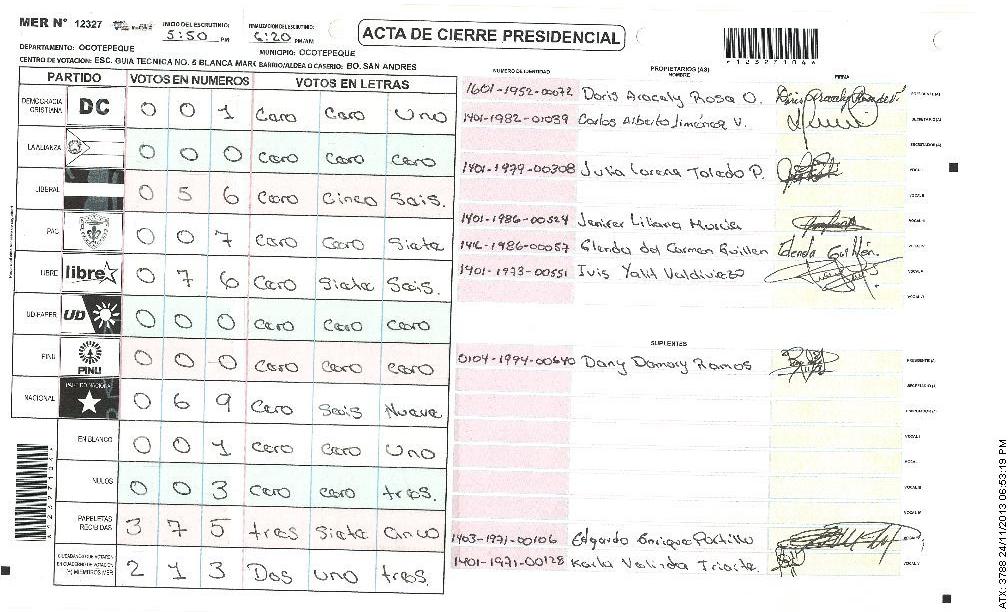 MER Nº 12327
INICIO DEL ESCRUTINIO:
5:50 PM
FINALIZACION DEL ESCRUTINIO:
6:20 PM/AM
ACTA DE CIERRE PRESIDENCIAL
DEPARTAMENTO: OCOTEPEQUE
MUNICIPIO: OCOTEPEQUE
CENTRO DE VOTACION: ESC. GUIA TECNICA NO. 5 BLANCA MARI BARRIO/ALDEA O CASERIO: BO. SAN ANDRES
PARTIDO VOTOS EN NUMEROS VOTOS EN LETRAS
DEMOCRACIA CRISTIANA DC 0 0 1 Cero Cero Uno
LA ALIANZA 0 0 0 Cero Cero Cero
LIBERAL 0 5 6 Cero Cinco Seis.
PAC 0 0 7 Cero Cero Siete
LIBRE libre 0 7 6 Cero Siete Seis.
UD-FAPER UD 0 0 0 Cero Cero Cero
PINU PINU 0 0 0 Cero Cero Cero
NACIONAL PARTIDO NACIONAL 0 6 9 Cero Seis Nueve
EN BLANCO 0 0 1 Cero Cero Uno
NULOS 0 0 3 Cero Cero tres.
PAPELETAS RECIBIDAS 3 7 5 tres Siete Cinco
CIUDADANOS QUE VOTARON EN CUADERNO DE VOTACION (+) MIEMBROS MER 2 1 3 Dos uno tres.
NUMERO DE IDENTIDAD PROPIETARIOS (AS) NOMBRE FIRMA
1601-1952-00072 Doris Aracely Rosa O. PRESIDENTE(A)
1401-1982-01039 Carlos Alberto Jiménez V. SECRETARIO(A)
ESCRUTADOR(A)
1401-1979-00308 Julia Lorena Toledo P. VOCAL I
VOCAL II
1401-1986-00524 Jenifer Liliana Murcia VOCAL III
1416-1986-00057 Glenda del Carmen Guillen VOCAL IV
1401-1973-00551 Ivis Yalil Valdiviezo VOCAL V
VOCAL VI
SUPLENTES
0104-1994-00640 Dany Damary Ramos PRESIDENTE(A)
SECRETARIO(A)
ESCRUTADOR(A)
VOCAL I
VOCAL II
VOCAL III
VOCAL IV
1403-1971-00106 Edgardo Enrique Portillo VOCAL V
1401-1971-00128 Karla Valinda Iriarte VOCAL VI
*12327104*
ATX: 3788 24/11/2013 06:53:19 PM